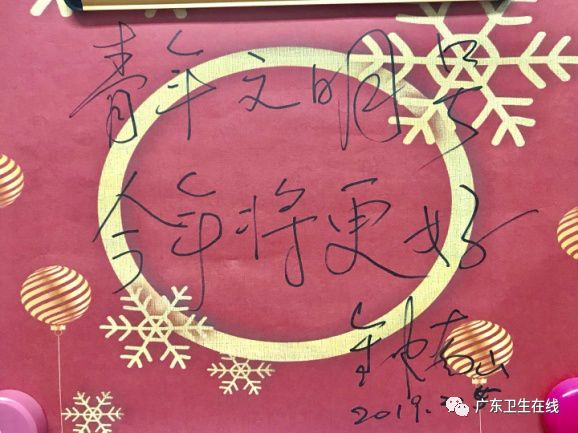 青年文明号
今年将更好
钟南山
2019.
广东卫生在线